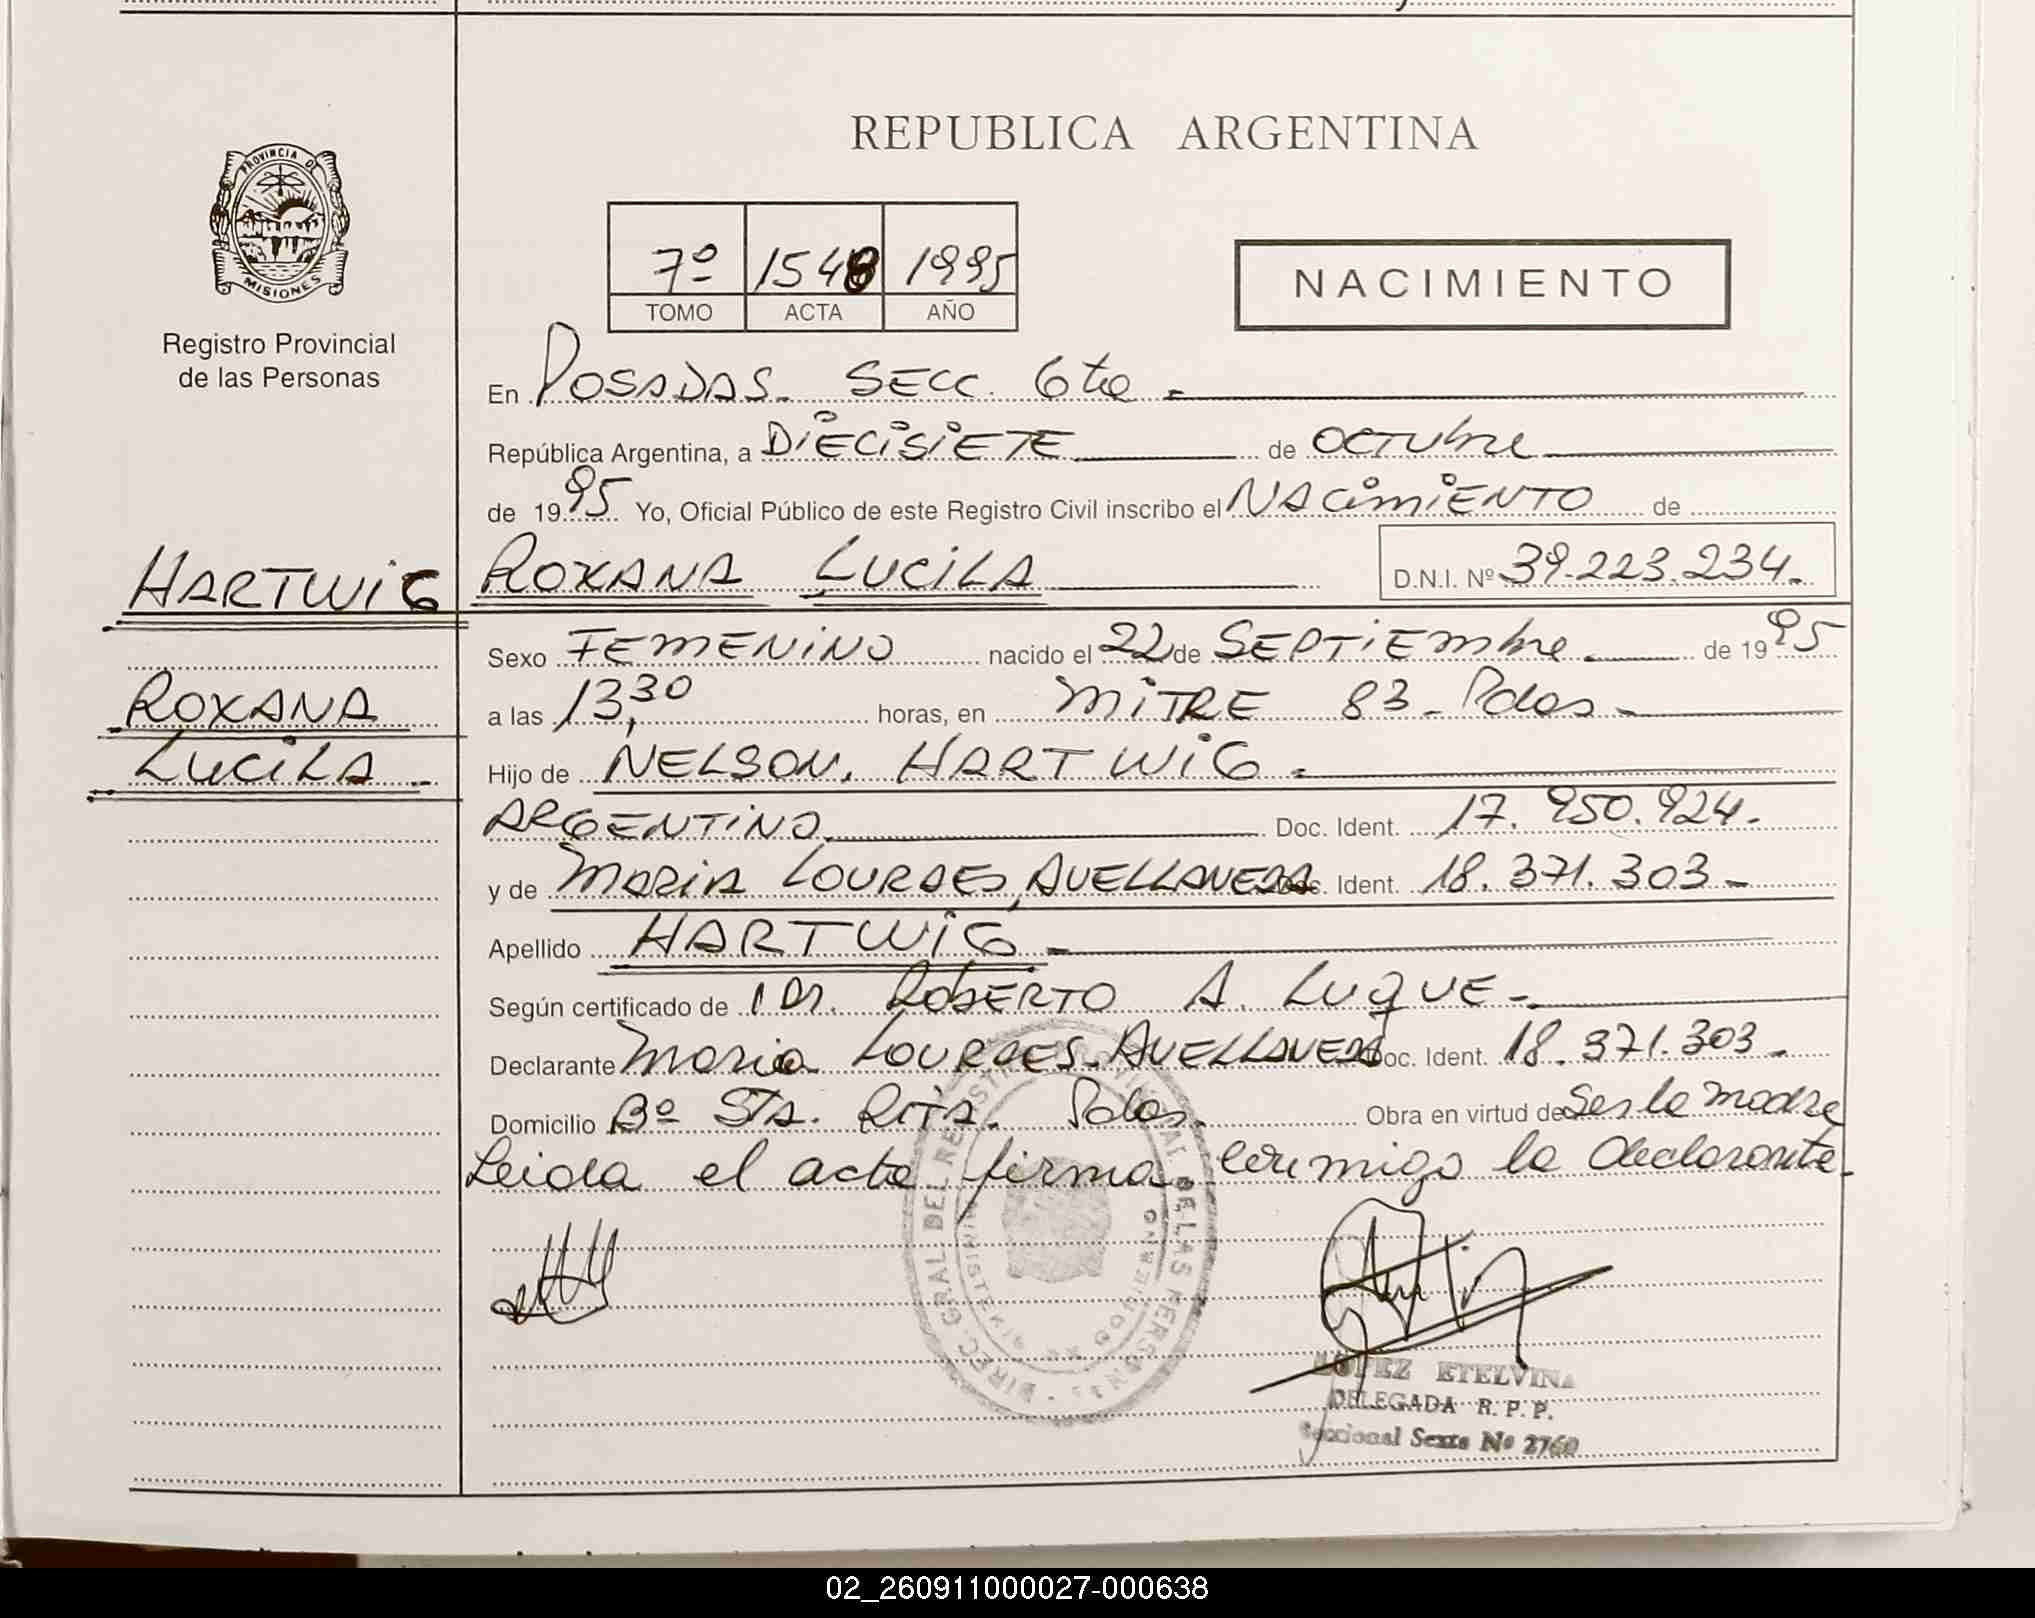 REPUBLICA ARGENTINA
PROVINCIA DE
MISIONES
Registro Provincial
de las Personas
7º 1548 1995
TOMO ACTA AÑO
NACIMIENTO
En POSADAS. SECC. 6ta.
República Argentina, a DIECISIETE de OCTUbre
de 1995 Yo, Oficial Público de este Registro Civil inscribo el NACimiENTO de
HARTWIG ROXANA LUCILA D.N.I. Nº 39.223.234.
Sexo FEMENINO nacido el 22 de SEPTIEmbre. de 1995
ROXANA
a las 13,30 horas, en MITRE 83 - Pdas -
LUCILA -
Hijo de NELSON, HARTWIG.
ARGENTINO Doc. Ident. 17.950.924.
y de MARIA LOURDES, AVELLANEDA Doc. Ident. 18.371.303 -
Apellido HARTWIG -
Según certificado de Dr. ROBERTO A. LUQUE -
Declarante Maria LOURDES. AVELLANEDA Doc. Ident. 18.371.303.
Domicilio Bº STA. RITA. Pdas. Obra en virtud de Ser la madre
Leida el acta firma conmigo la declarante.
DIREC. GRAL DEL REGISTRO PROVINCIAL DE LAS PERSONAS
MINISTERIO GOBIERNO
LOPEZ ETELVINA
DELEGADA R.P.P.
Seccional Sexta Nº 2760
02_260911000027-000638